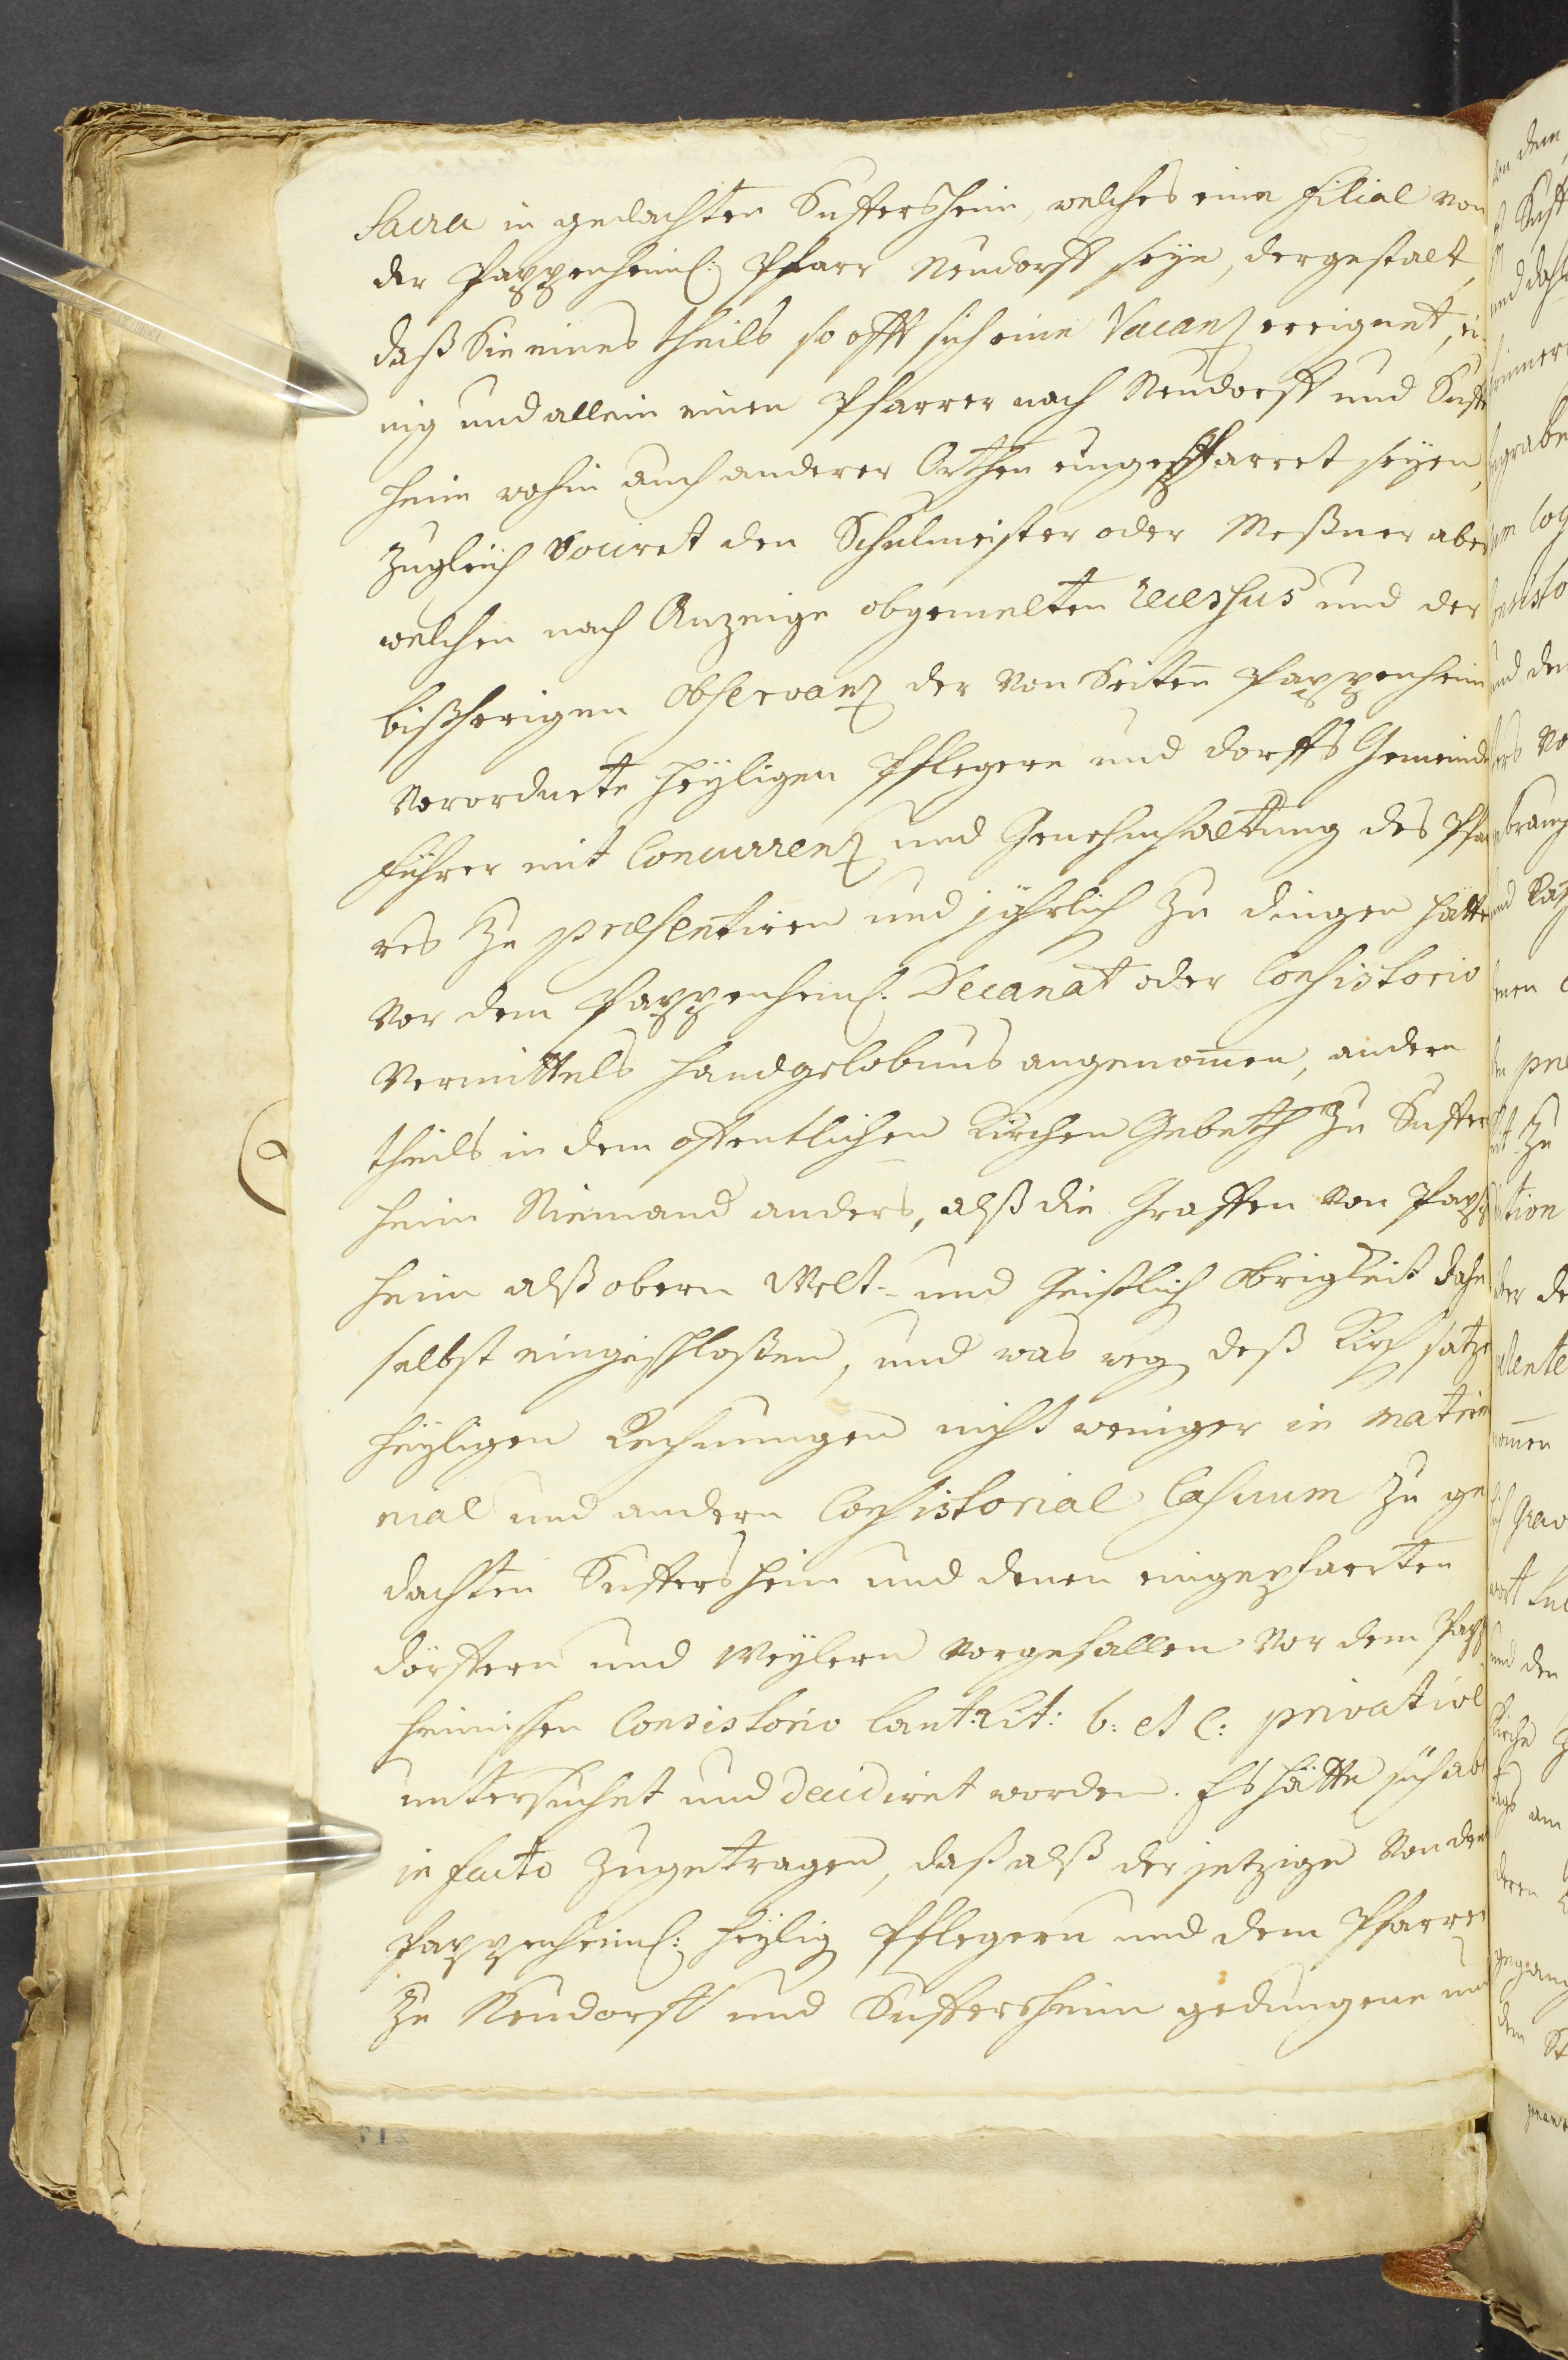 Sacra in gedachten Suffersheim, welches eine Filial von
der Pappenheiml: Pfarr Neudorff seye, dergestalt,
daß Sie eines theils so offt sich eine Vacanz ereignet, ei-
nig und allein einen Pfarrer nach Neudorff und Suffers
heim wohin auch anderer Orthen eingepfarret seyen,
zugleich den Schulmeister oder Meßner aber
welchen nach Anzeige obgemelten recessus und der
bißherigen observanz der von Seiten Pappenheim
verordnete Heyligen Pflegere und dorffs Gemeinde
führer mit Concurrenz und Genehmhaltung des Pfar
rers zu præsentiren und jährlich zu dingen hätte
vor dem Pappenheiml. Decanat oder Consistorio
vermittels handgelobnus angenommen, andern
theils in dem offentlichen Kirchen Gebeth zu Suffers
heim Niemand anders, alß die Graffen von Papp
heim alß obern Welt- und Geistlich Obrigkeit dahe
selbst eingeschloßen, und was weg deß Kirchsatz
heyligen Rechnungen nicht weniger in matrim
nial und andern Consistorial Casuum zu ge
dachten Suffersheim und denen eingepfarrten
dörffern und Weylern vorgefallen vor dem Papp
heimischen Consistorio Lit: b: et c: privative
untersuchet und decidiret worden. Es hätte sich aber
in facto zugetragen, daß alß der jetzige von den
Pappenheiml: Heylig Pflegern und dem Pfarrer
zu Neudorff und Suffersheim gedungene und